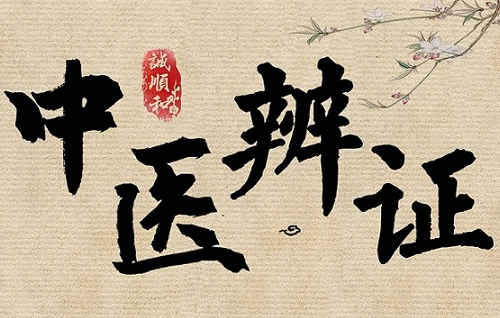 中医辨证
誠順和